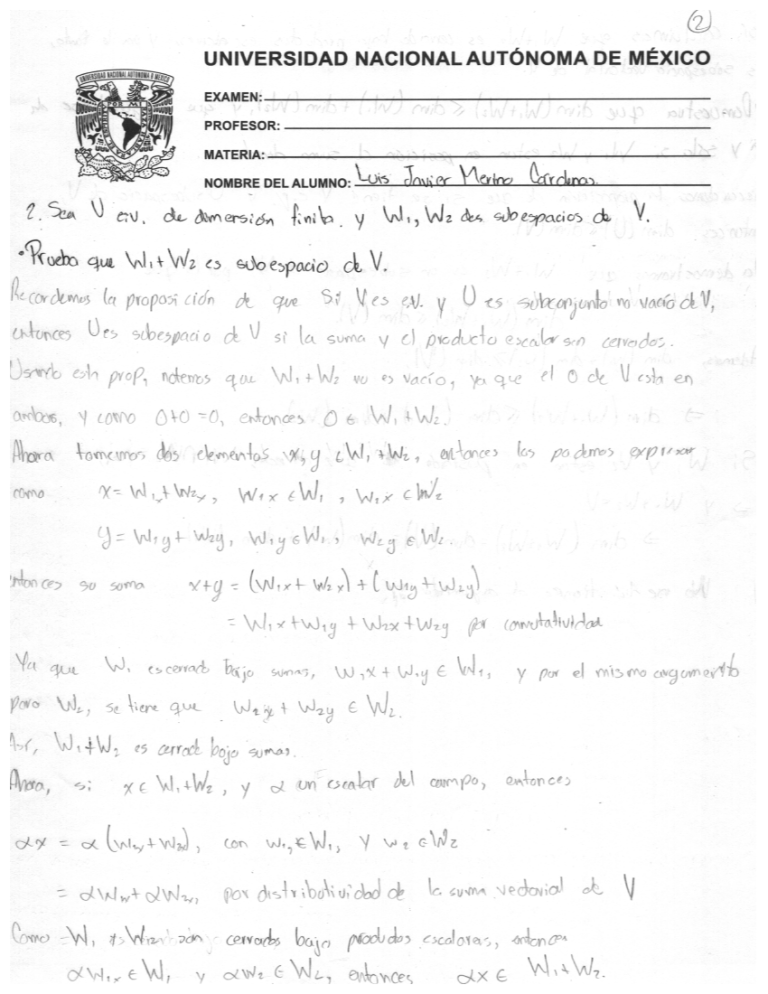 2
UNIVERSIDAD NACIONAL AUTÓNOMA DE MÉXICO
EXAMEN:
PROFESOR:
MATERIA:
NOMBRE DEL ALUMNO: Luis Javier Merino Cárdenas
2. Sea V e.v. de dimersión finita. y W₁, W₂ dos subespacios de V.
• Prueba que W₁+W₂ es subespacio de V.
Recordemos la proposición de que Si V es e.v. y U es subconjunto no vacío de V,
entonces U es subespacio de V si la suma y el producto escalar son cerrados.
Usando esta prop, notemos que W₁+W₂ no es vacío, ya que el 0 de V esta en
ambos, y como 0+0=0, entonces 0 ∈ W₁+W₂.
Ahora tomemos dos elementos x,y ∈ W₁+W₂, entonces los podemos expresar
como x = W₁x + W₂x, W₁x ∈ W₁, W₂x ∈ W₂
y = W₁y + W₂y, W₁y ∈ W₁. W₂y ∈ W₂.
entonces su soma x+y = (W₁x + W₂x) + (W₁y + W₂y)
= W₁x + W₁y + W₂x + W₂y por conmutatividad
Ya que W₁ es cerrado bajo sumas, W₁x + W₁y ∈ W₁, y por el mismo argumento
para W₂, se tiene que W₂x + W₂y ∈ W₂.
Así, W₁+W₂ es cerrado bajo sumas.
Ahora, si x ∈ W₁+W₂, y α un escalar del campo, entonces
αx = α(W₁x + W₂x), con W₁x ∈ W₁, y W₂ ∈ W₂
= αW₁x + αW₂x, por distributividad de la suma vectorial de V
Como W₁ y W₂ son cerrados bajo productos escalares, entonces
αW₁x ∈ W₁ y αW₂ ∈ W₂, entonces αx ∈ W₁+W₂.